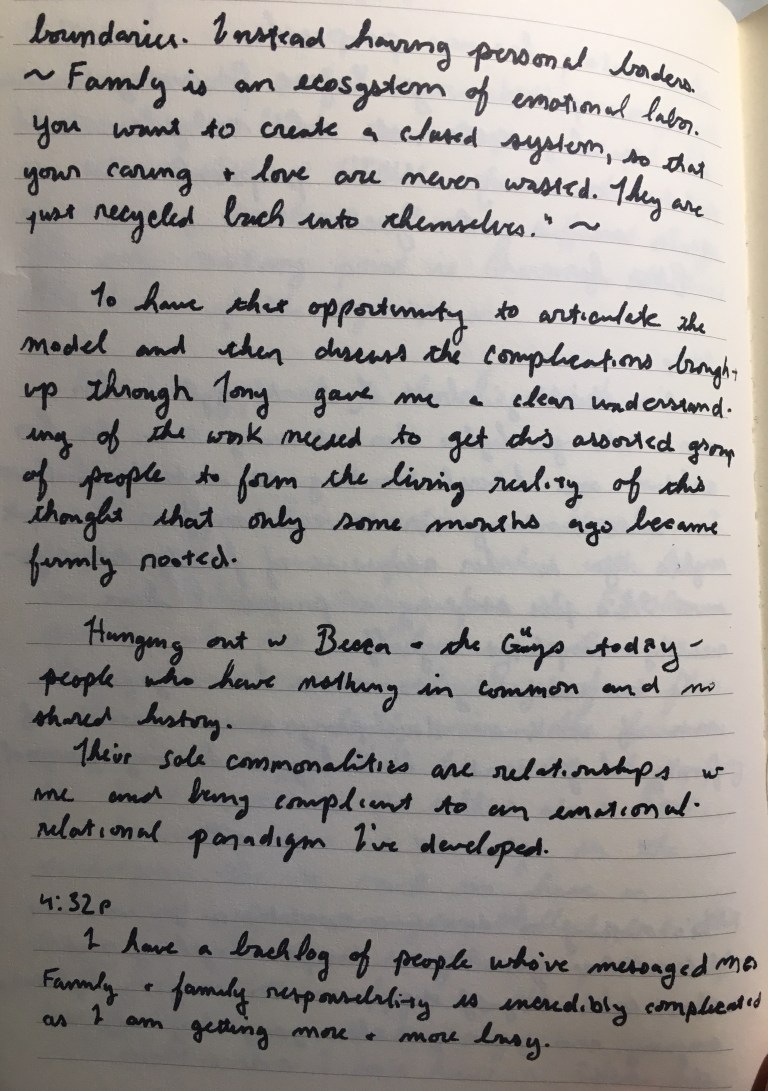 boundaries. Instead having personal borders.
~ Family is an ecosystem of emotional labor.
You want to create a closed system, so that
your caring + love are never wasted. They are
just recycled back into themselves." ~
To have that opportunity to articulate the
model and then discuss the complications brought
up through Tony gave me a clear understand-
ing of the work needed to get this assorted group
of people to form the living reality of this
thought that only some months ago became
firmly rooted.
Hanging out w Becca + the Güys today -
people who have nothing in common and no
shared history.
Their sole commonalities are relationships w
me and being compliant to an emotional-
relational paradigm I've developed.
4:32p
I have a backlog of people who've messaged me.
Family + family responsibility is incredibly complicated
as I am getting more + more busy.